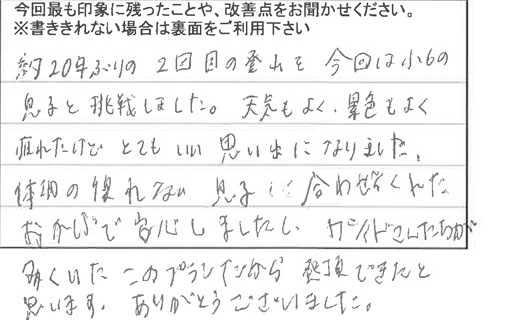 今回最も印象に残ったことや、改善点をお聞かせください。
※書ききれない場合は裏面をご利用下さい
約20年ぶりの 2回目の登山を 今回は小6の
息子と挑戦しました。天気もよく、景色もよく
疲れたけど とても いい 思い出に なりました。
体調の 優れない 息子に 合わせてくれた
おかげで 安心しましたし、ガイドさんたちが
多くいた このプランだから 登頂できたと
思います。ありがとうございました。